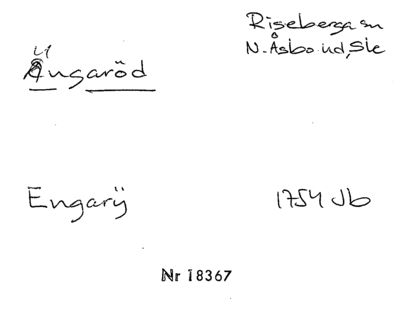 Riseberga sn
N. Åsbo hd, Sk
Ängaröd
Engarÿ 1754 Jb
Nr 18367